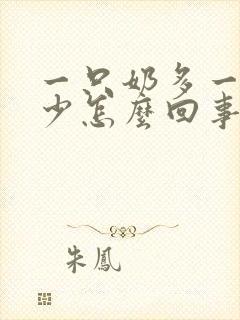 一只奶多一
少怎麼回事
朱鳳